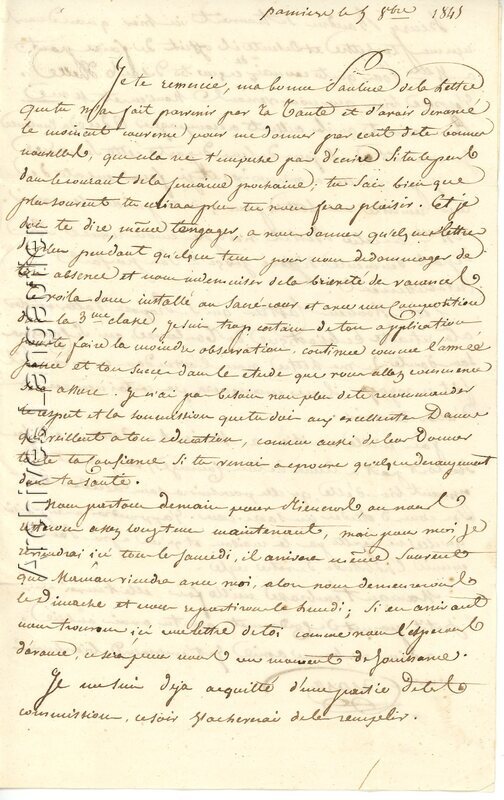 pamiers le 5 8bre 1845
Je te remercie, ma bonne Pauline de la lettre
que tu m'a fait parvenir par ta Tante et d'avoir devancé
le moment convenu pour me donner par ecrit de tes bonnes
nouvelles, que cela ne t'empeche pas d'écrire si tu le peux
dans le courant de la semaine prochaine; tu sais bien que
plus souvent tu ecriras plus tu nous fera plaisir. Et je
dois te dire, même t'engager, a nous donner quelques lettres
de plus pendant quelque tems pour nous dedommager de
ton absence et nous indemniser de la brieveté des vacances
te voila donc installé au Sacré-coeur et avec une Composition
de la 3me classe, je suis trop certain de ton application
pour te faire la moindre observation, continue comme l'année
passée et ton succès dans les etudes que vous allez commencer
est assuré. Je n'ai pas besoin non plus de te recommander
le respect et la soumission que tu dois aux excellentes Dames
qui veillent a ton education, comme aussi de leur donner
toute ta confiance si tu venais a eprouver quelque derangement
dans ta santé.
Nous partons demain pour, ou nous
resterons assez longtems maintenant, mais pour moi je
reviendrai ici tous les samedi, il arrivera même souvent
que Maman viendra avec moi, alors nous demeurerons
le Dimanche et nous repartirons le lundi; Si en arrivant
nous trouvons ici une lettre de toi comme nous l'esperons
d'avance, ce sera pour nous un moment de jouissance.
Je me suis deja acquitté d'une partie de tes
commissions, ce soir j'acheverai de les remplir.
Archives Languedfief